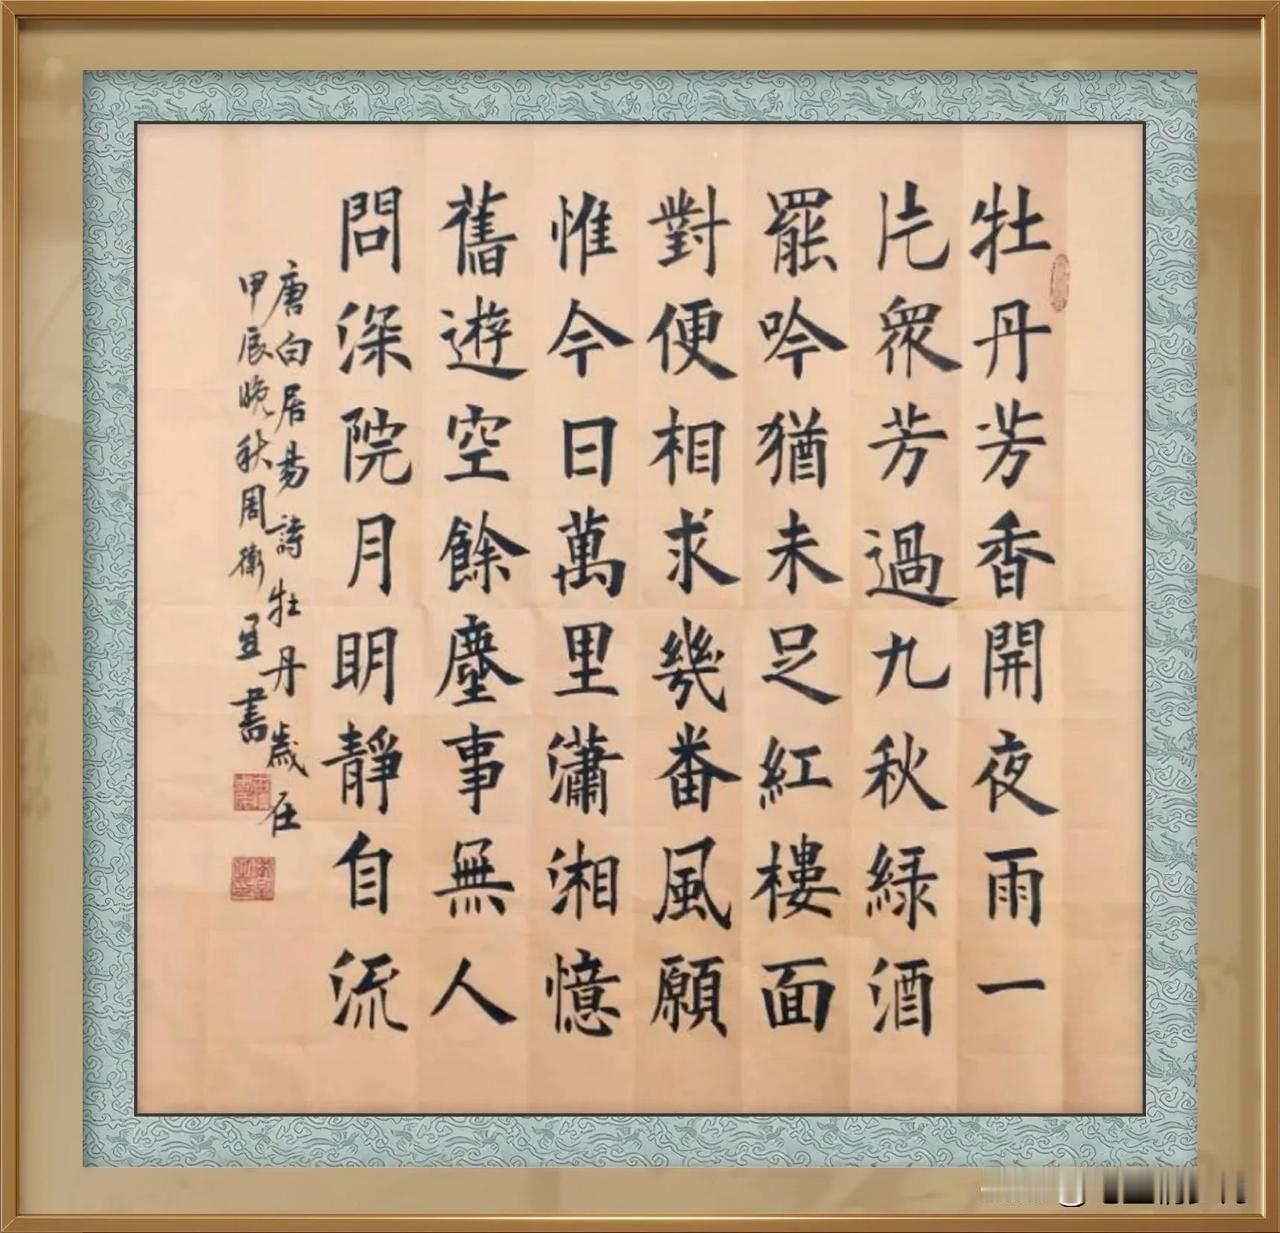 牡丹芳香開夜雨一
片衆芳過九秋緑酒
罷吟猶未足紅樓面
對便相求幾番風願
惟今日萬里瀟湘憶
舊遊空餘塵事無人
問深院月明靜自流
唐白居易詩牡丹歲在
甲辰晚秋周衛宜書